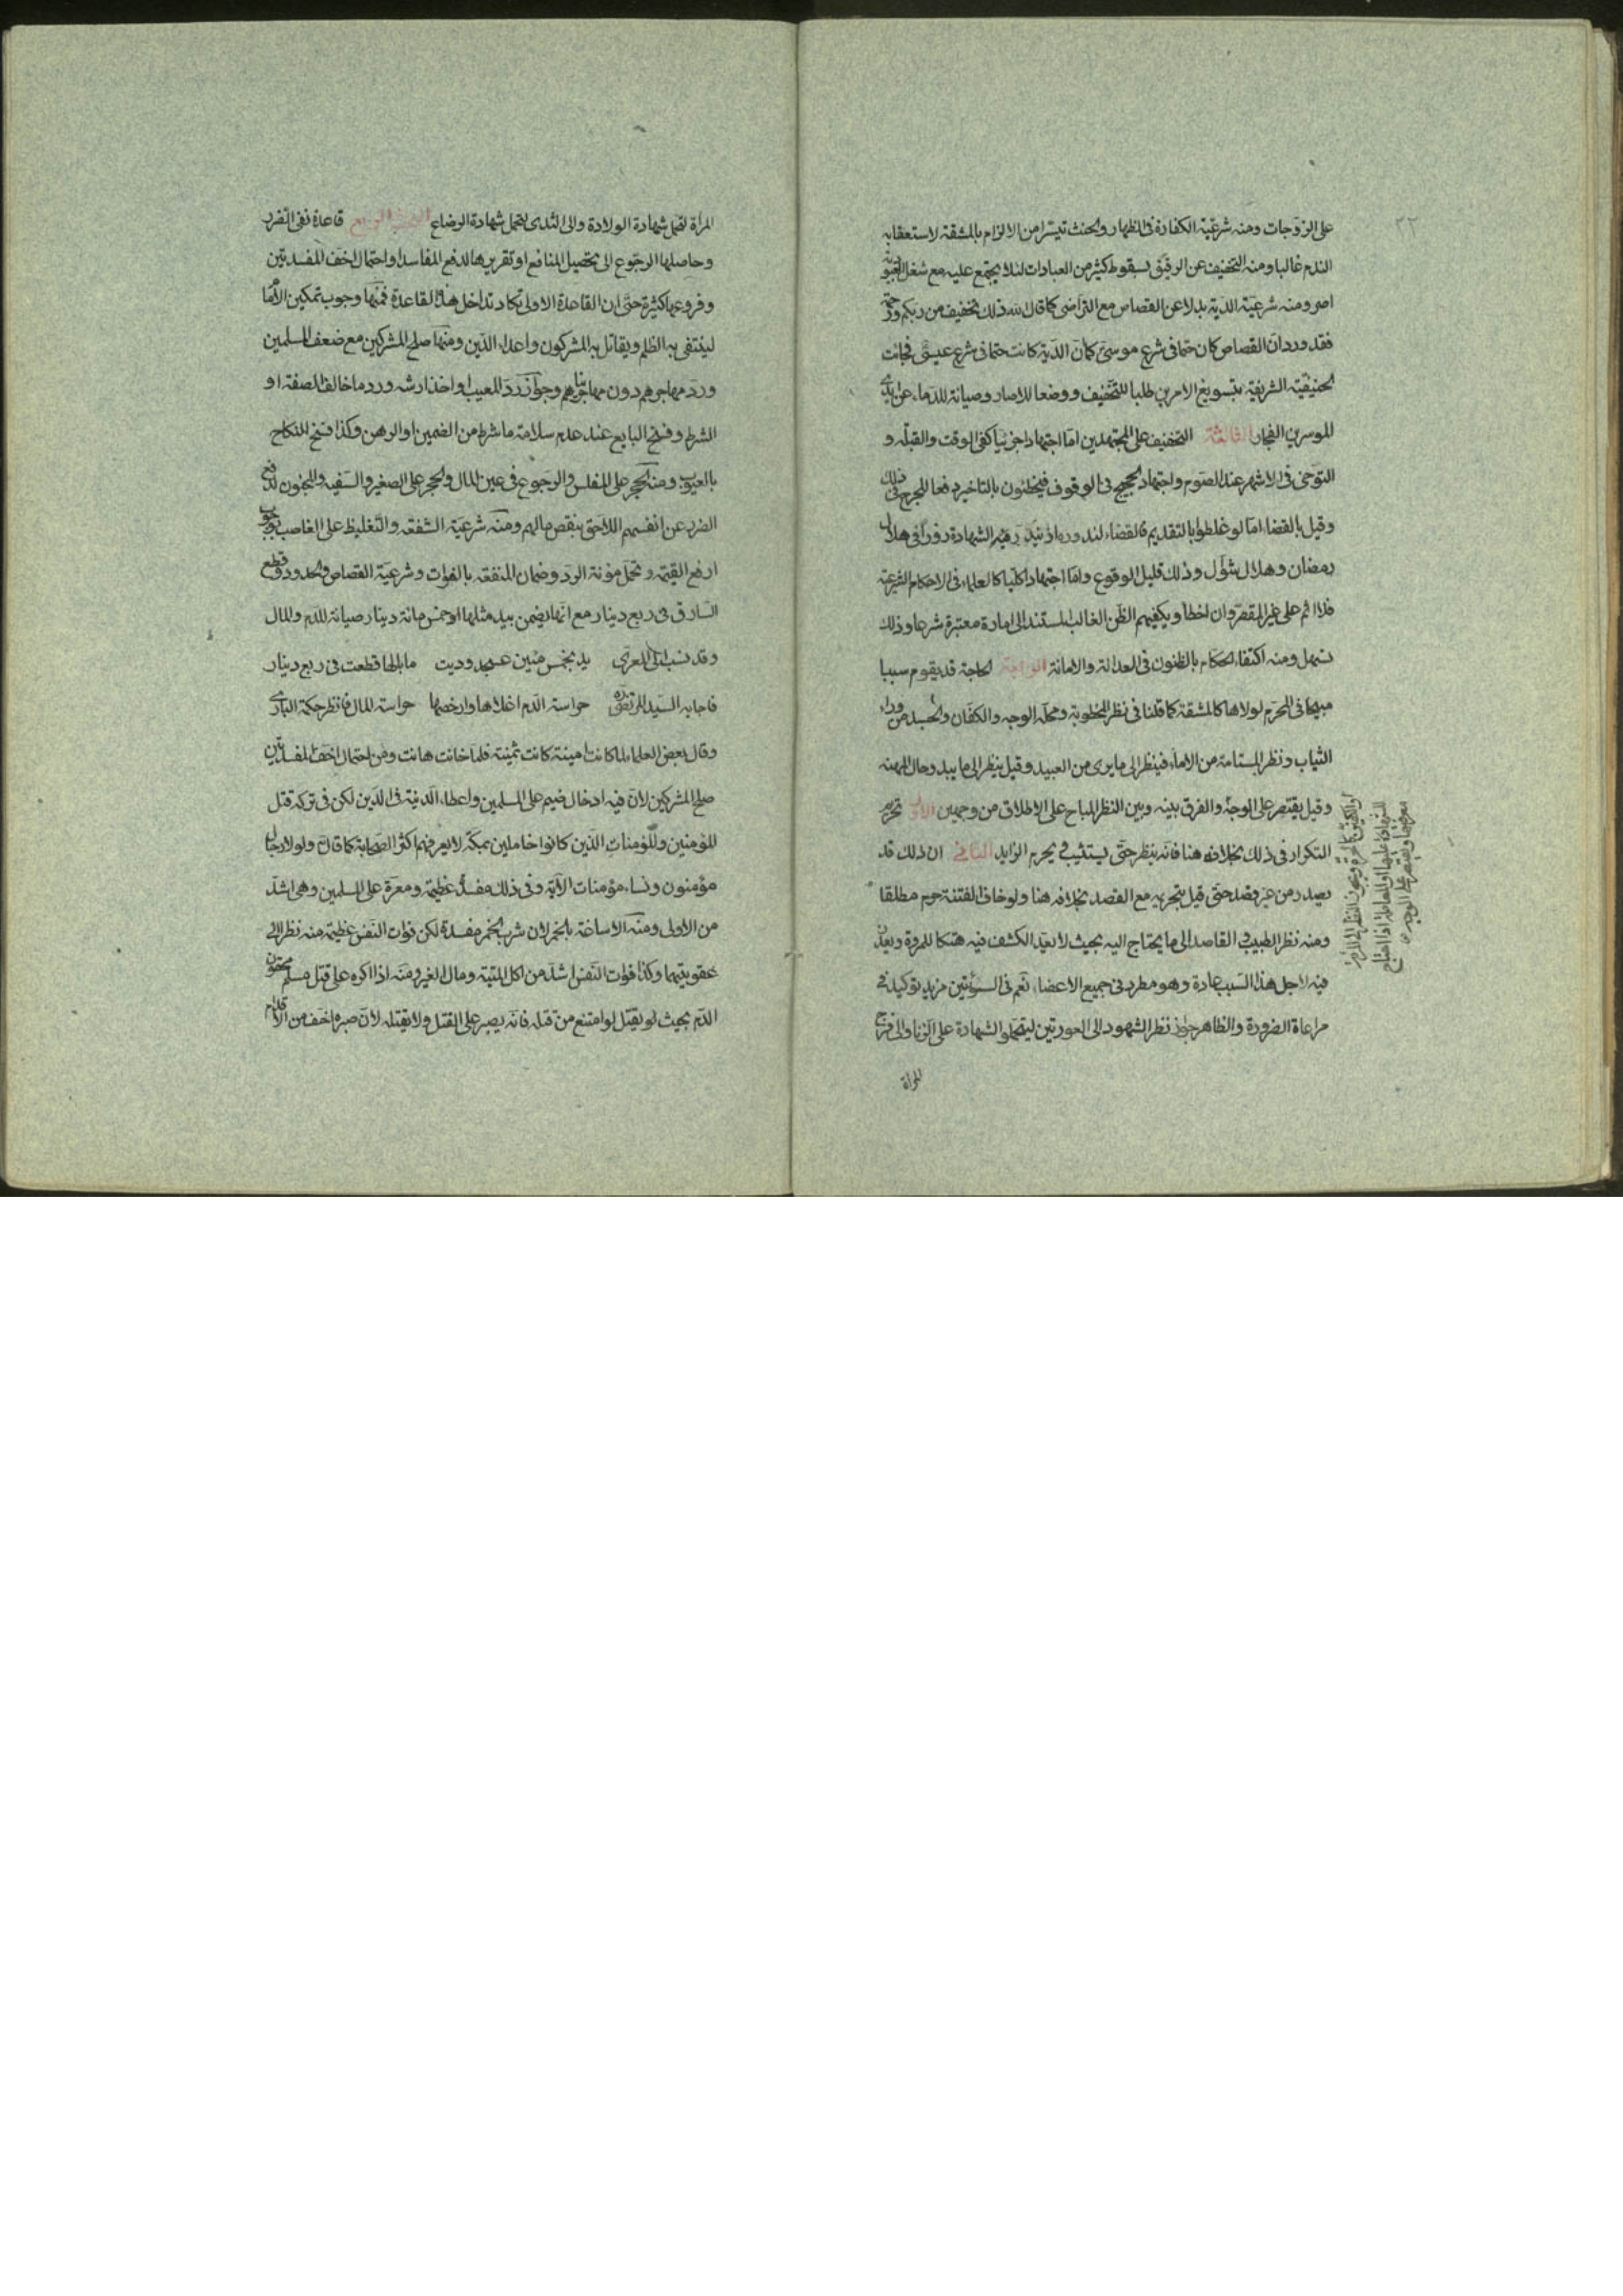 ٢٢
على الزوجات ومنه شرعيّة الكفارة فى الظهار والحنث تيسّرا من الالزام بالمشقة لاستعقابه
الندم غالبا ومنه التخفيف عن الرقيق بسقوط كثير من العبادات لئلا يجتمع عليه مع شغل العبودية
اصر ومنه شرعية الدية بدلا عن القصاص مع التراضى كما قال الله ذلك تخفيف من ربكم ورحمة
فقد ورد ان القصاص كان حتما فى شرع موسىٰ كما ان الدية كانت حتما فى شرع عيسى فجائت
الحنيفيّة الشريفة بتسويغ الامرين طلبا للتخفيف ووضعا للآصار وصيانة للدماء عن ايدى
الموسرين الفجار الثالثة التخفيف على المجتهدين امّا اجتهادا جزئيا كفى الوقت والقبلة و
التوخى فى الاشهر عند الصوم واجتهاد الحجيج فى الوقوف فيخطئون بالتاخير دفعا للحرج فى ذلك
وقيل بالقضاء امّا لو غلطوا بالتقديم فالقضاء لندوره اذ يندر فيه الشهادة زورا فى هلال
رمضان وهلال شوّال وذلك قليل الوقوع وامّا اجتهادا كليّا كالعلماء فى الاحكام الشرعية
فلا اثم على غير المقصّر وان اخطأ ويكفيهم الظّن الغالب المستند الى امارة معتبرة شرعا وذلك
تسهل ومنه اكتفاء الحكام بالظنون فى العدالة والامانة الرابعة الحاجة قد يقوم سببا
مبيحا فى المحرم لولاها كالمشقة كما قلنا فى نظر المخطوبة ومحلّه الوجه والكفّان والجسد من وراء
الثياب ونظر المستامة من الاماء فينظر الى ما يرى من العبيد وقيل ينظر الى ما يبدو حال المهنه
وقيل يقتصر على الوجه والفرق بينه وبين النظر المباح على الاطلاق من وجهين الاول تحريم
التكرار فى ذلك بخلافه هنا فانه ينظر حتّى يستثبت ويحرم الزايد الثانى ان ذلك قد
يصدر من غير قصد حتّى قيل بتحريمه مع القصد بخلافه هنا ولو خاف الفتنة حرم مطلقا
ومنه نظر الطبيب القاصد الى ما يحتاج اليه بحيث لا يعدّ الكشف فيه هتكا للمروة ويعذر
فيه لاجل هذا السبب عادة وهو مطرد فى جميع الاعضاء نعم فى السوأتين مزيد توكيد فى
مراعاة الضرورة والظاهر جواز نظر الشهود الى العورتين ليتحملوا الشهادة على الزنا والى فرج
المراة
ويجوز النظر الى المراة
للشهادة عليها او للمعاملة اذا احتاج
معرفتها ويقتصر على الوجه
المرأة لتحمل شهادة الولادة والى الثدى لتحمل شهادة الرضاع القاعدة الرابعة قاعدة نفى الضرر
وحاصلها الرجوع الى تحصيل المنافع او تقريرها لدفع المفاسد او احتمال اخف المفسدتين
وفروعها كثيرة حتّى ان القاعدة الاولى تكاد تداخل هذه القاعدة فمنها وجوب تمكين الامام
لينتفى به الظلم ويقاتل به المشركون واعداء الدّين ومنها صلح المشركين مع ضعف المسلمين
وردّ مهاجرهم دون مهاجرينا وجواز ردّ المعيب او اخذ ارشه وردّ ما خالف الصفة او
الشرط وفسخ البايع عند عدم سلامة ما شرط من الضمين او الرهن وكذا فسخ النكاح
بالعيوب ومنه الحجر على المفلس والرجوع فى عين المال والحجر على الصغير والسفيه والمجنون لدفع
الضرر عن انفسهم اللاحق بنقص مالهم ومنه شرعيّة الشفعة والتغليظ على الغاصب بوجوب
ارفع القيم وتحمّل مؤنة الردّ وضمان المنفعة بالفوات وشرعيّة القصاص والحدود وقطع
السارق فى ربع دينار مع انّها يضمن بيد مثلها او خمس مائة دينار صيانة للدم والمال
وقد نسب الى المعرّى يد بخمس مئين عسجد وديت ما بالها قطعت فى ربع دينار
فاجابه السيّد المرتضى ره حراسة الدّم اغلاها وارخصها حراسة المال فانظر حكمة البارى
وقال بعض العلماء لما كانت امينة كانت ثمينة فلمّا خانت هانت ومن احتمال اخف المفسدتين
صلح المشركين لانّ فيه ادخال ضيم على المسلمين واعطاء الدنية فى الدّين لكن فى تركه قتل
المؤمنين والمؤمنات الّذين كانوا خاملين بمكّة لا يعرفهم اكثر الصحابة كما قال ولولا رجال
مؤمنون ونساء مؤمنات الآية وفى ذلك مفسدة عظيمة ومعرة على المسلمين وهى اشدّ
من الاولى ومنه الاساغة بالخمر لان شرب الخمر مفسدة لكن فوات النفس عظيمة منه نظرا الى
عقوبتيهما وكذا فوات النفس اشدّ من اكل الميتة ومال الغير ومنه اذا اكره على قتل مسلم محقون
الدّم بحيث لو يقتل لو امتنع من قتله فانّه يصبر على القتل ولا يقتله لانّ صبره اخف من الاقدام